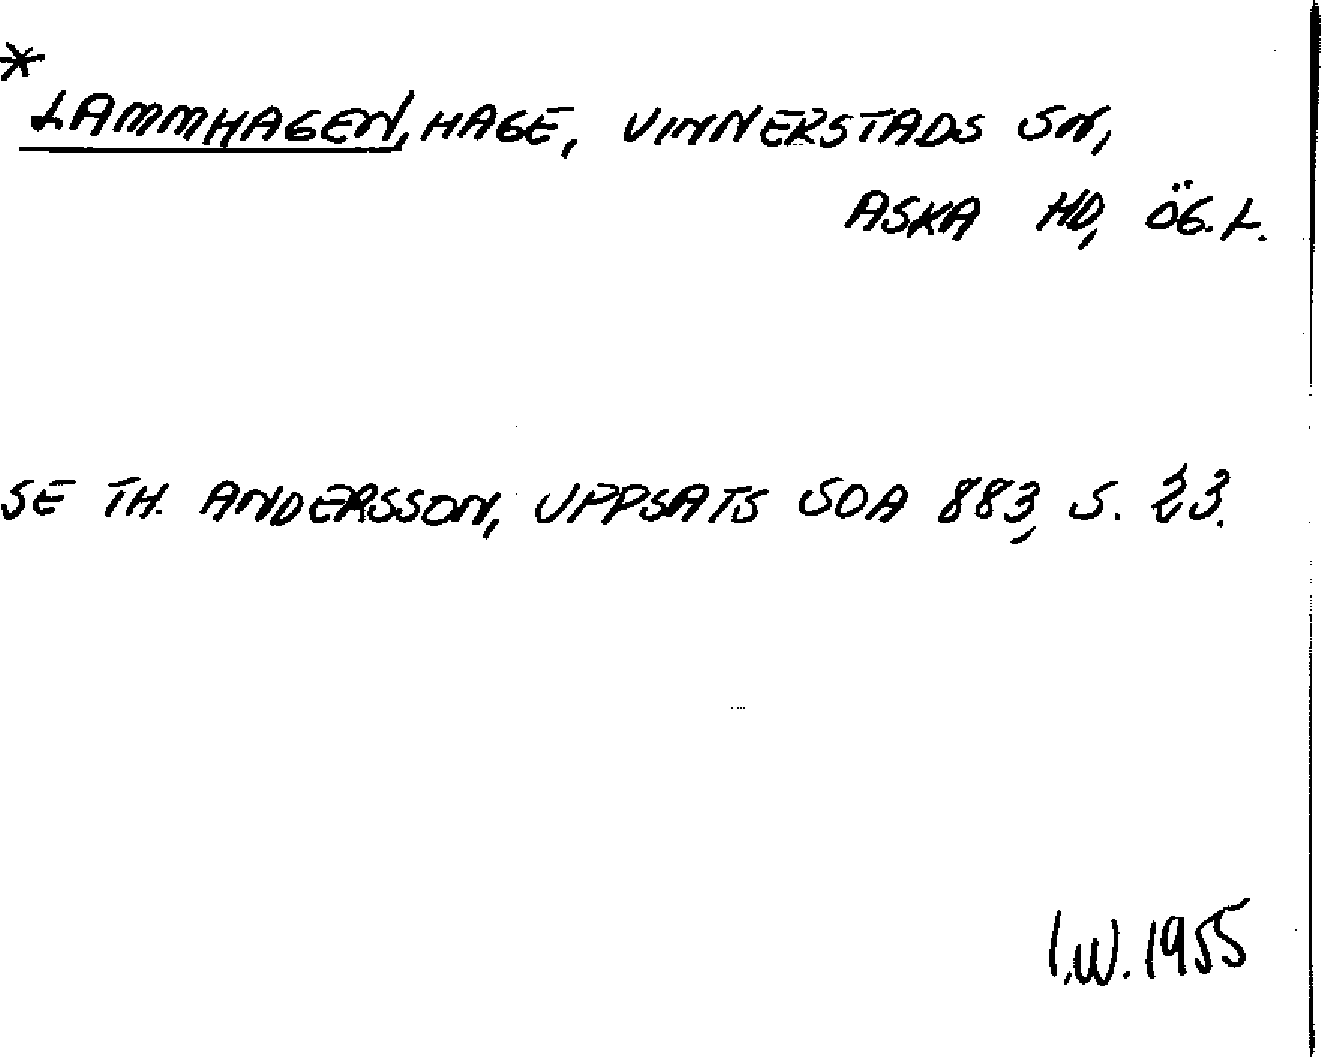 *
LAMMHAGEN, HAGE, VINNERSTADS SN,
ASKA HD, ÖG.L.
SE TH. ANDERSSON, UPPSATS SOA 883, S. 23.
I.W. 1955